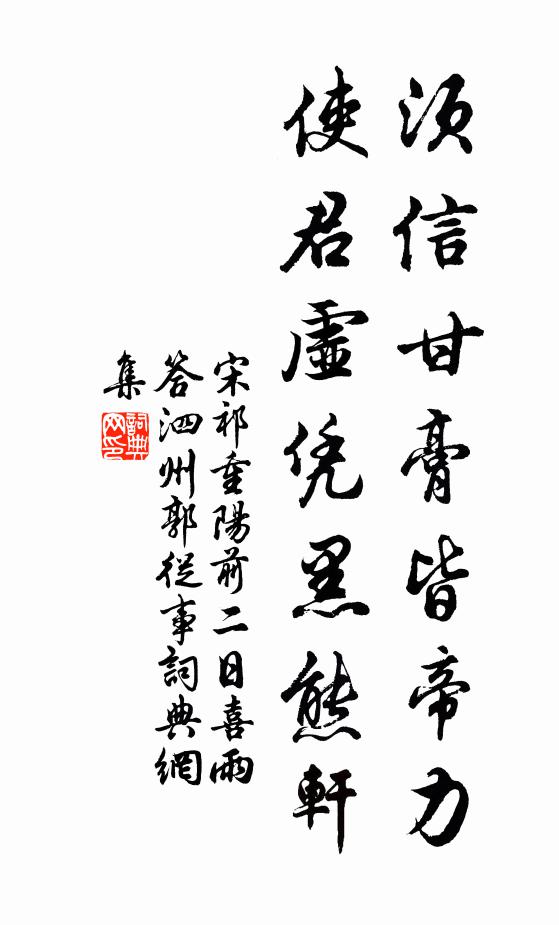 須信甘膏皆帝力
使君虛凭黑熊軒
宋祁重陽前二日喜雨
答泗州郭從事詞典網
集
詞典
网印